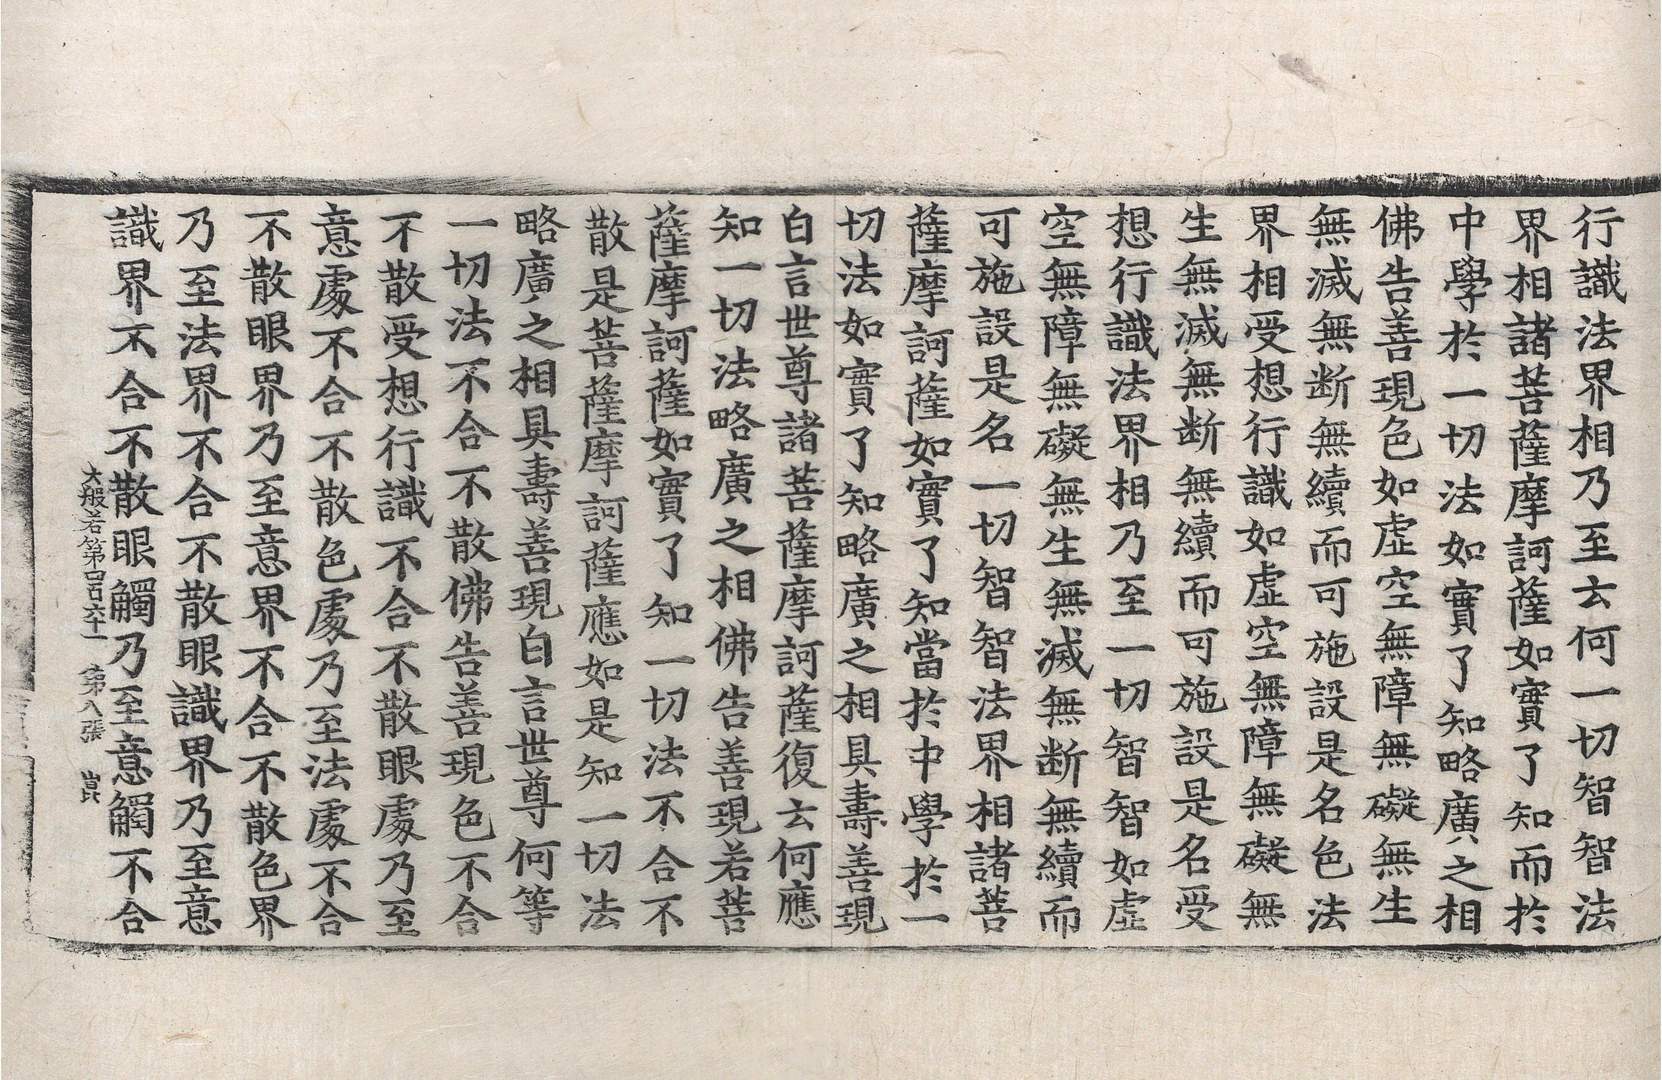 行識法界相乃至云何一切智智法
界相諸菩薩摩訶薩如實了知而於
中學於一切法如實了知略廣之相
佛告善現色如虛空無障無礙無生
無滅無断無續而可施設是名色法
界相受想行識如虛空無障無礙無
生無滅無断無續而可施設是名受
想行識法界相乃至一切智智如虛
空無障無礙無生無滅無断無續而
可施設是名一切智智法界相諸菩
薩摩訶薩如實了知當於中學於一
切法如實了知略廣之相具壽善現
白言世尊諸菩薩摩訶薩復云何應
知一切法略廣之相佛告善現若菩
薩摩訶薩如實了知一切法不合不
散是菩薩摩訶薩應如是知一切法
略廣之相具壽善現白言世尊何等
一切法不合不散佛告善現色不合
不散受想行識不合不散眼處乃至
意處不合不散色處乃至法處不合
不散眼界乃至意界不合不散色界
乃至法界不合不散眼識界乃至意
識界不合不散眼觸乃至意觸不合
大般若第四百六十一 第八張 崑